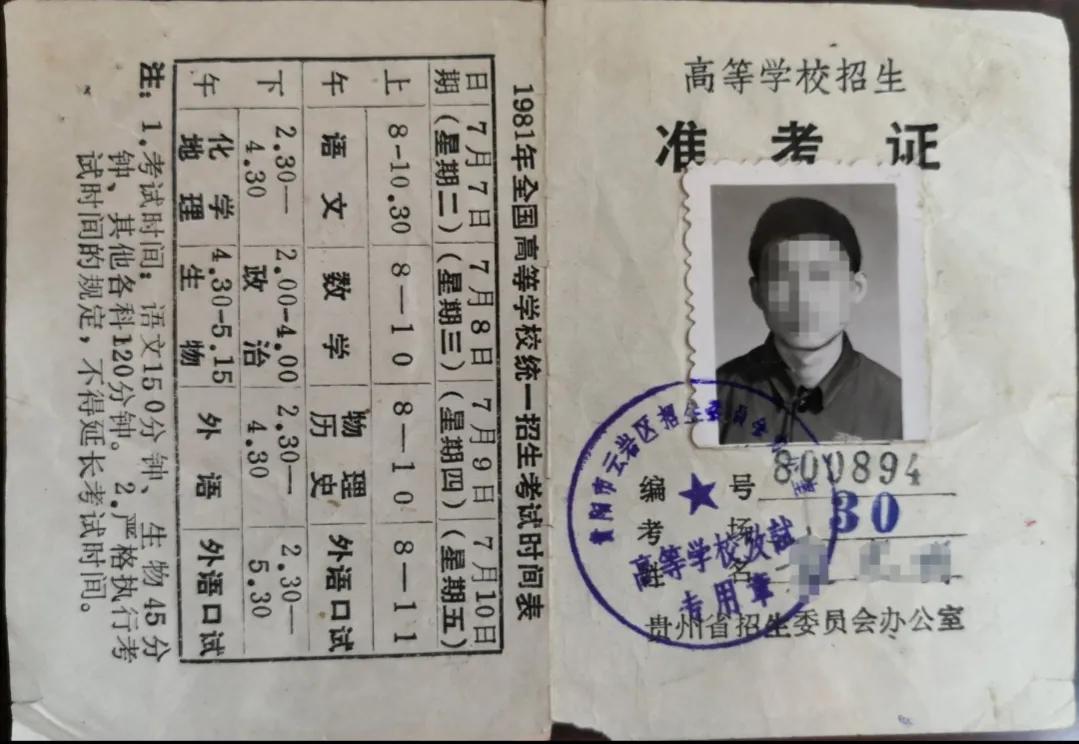 1981年全国高等学校统一招生考试时间表
日期 7月7日 7月8日 7月9日 7月10日
(星期二) (星期三) (星期四) (星期五)
上午 8-10.30 8—10 8—10 8—11
语文 数学 物理 外语口试
历史
下午 2.30— 2.00-4.00 2.30— 2.30—
4.30 政治 4.30 5.30
化学 4.30-5.15 外语 外语口试
地理 生物
注：1.考试时间：语文150分钟、生物45分
钟、其他各科120分钟。2.严格执行考
试时间的规定，不得延长考试时间。
高等学校招生
准考证
编号 800894
考场 30
姓名
贵州省招生委员会办公室
贵阳市云岩区招生委员会
高等学校考试
专用章